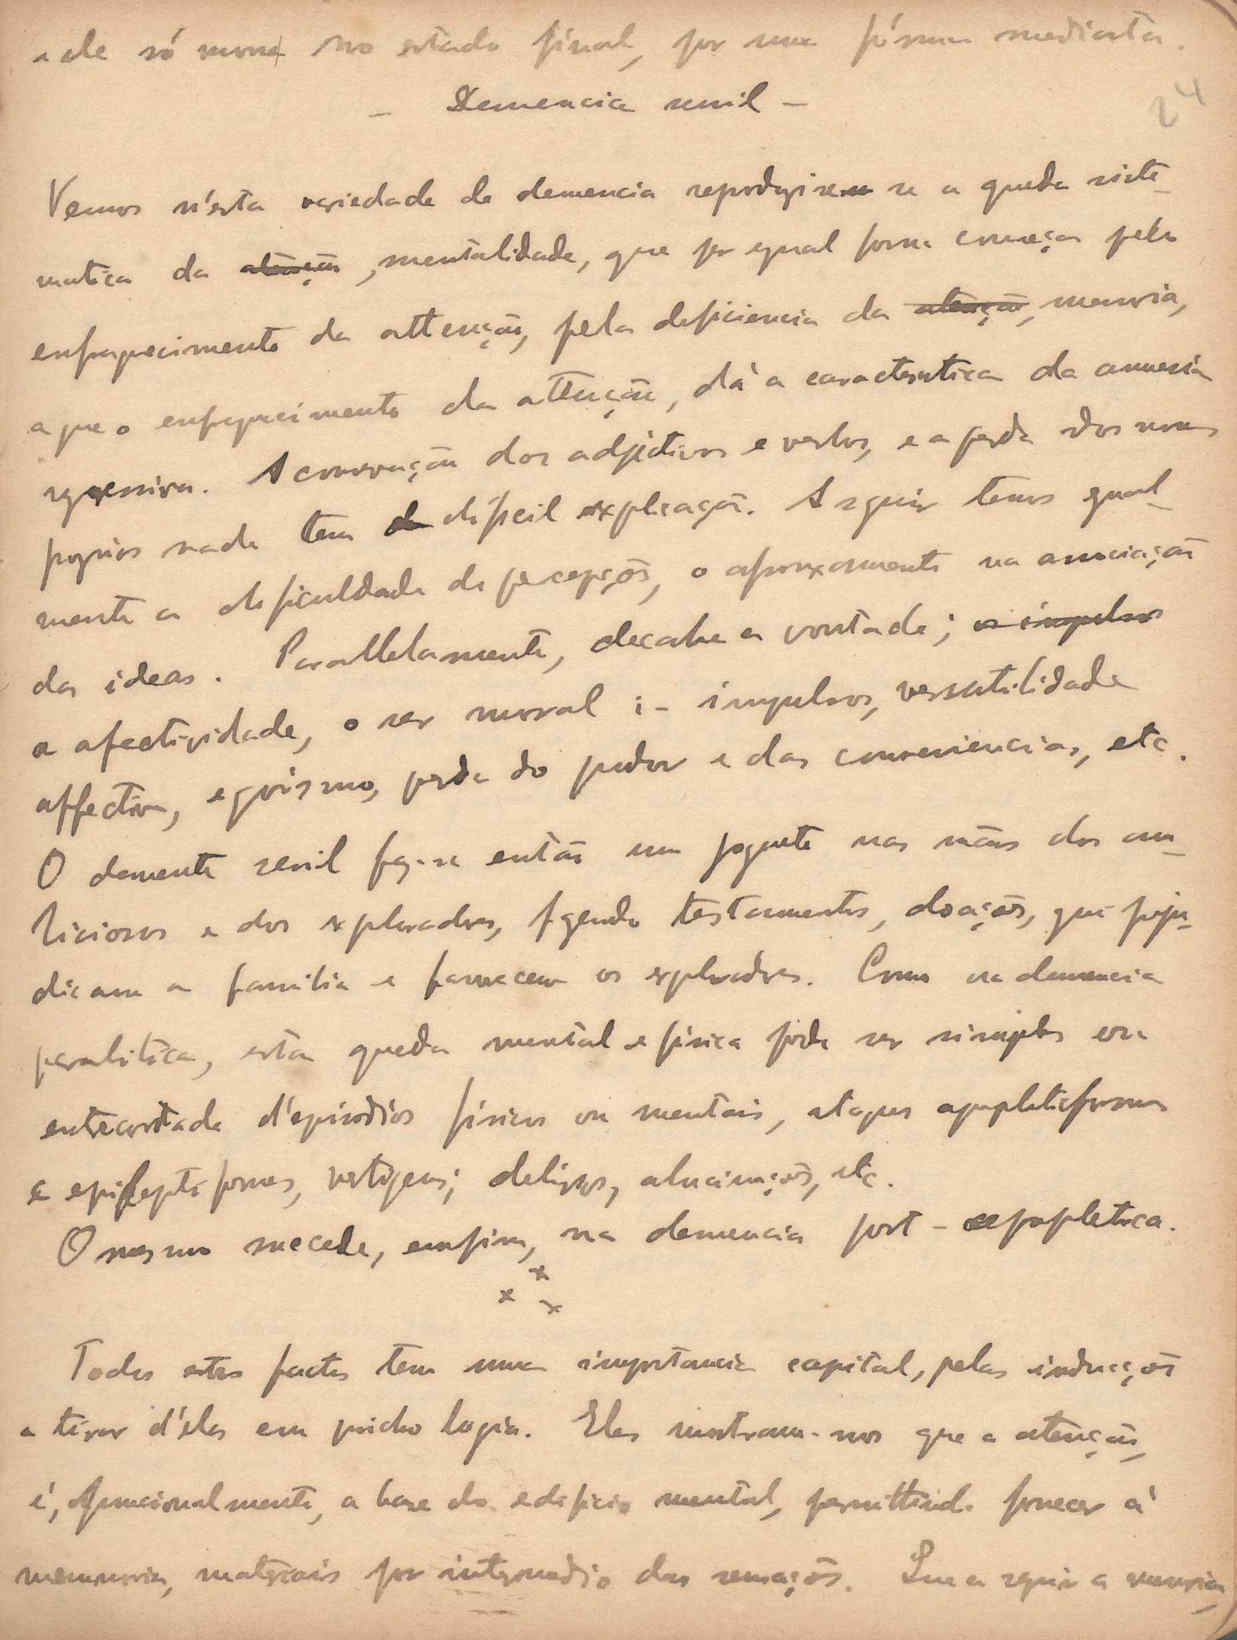 e de só morre no estado final, por uma fórma mediata.
— Demencia senil —
24
Vemos n'esta variedade de demencia reproduzirem se a queda siste-
matica da atenção, mentalidade, que por egual forma começa pelo
enfraquecimento da attenção, pela deficiencia da atenção, memoria,
a que o enfraquecimento da atenção, dá a caracteristica da amnesia
regressiva. A conservação dos adjétivos e verbos, e a perda dos nomes
proprios nada tem de dificil explicação. A seguir temos egual-
mente a dificuldade de percepções, o afrouxamento na associação
das ideas. Parallelamente, decahe a vontade; os impulsos
a afectividade, o ser moral: - impulsos, versatilidade
affectiva, egoismo, perda do pudor e das conveniencias, etc.
O demente senil faz-se então um joguete nas mãos dos am-
biciosos e dos exploradores, fazendo testamentos, doações, que preju-
dicam a familia e favorecem os exploradores. Como na demencia
paralitica, esta queda mental e fisica póde ser simples ou
entrecortada d'episodios fisicos ou mentais, ataques apopletiformes
e epileptiformes, vertigens; delirios, alucinações, etc.
O mesmo succede, emfim, na demencia post-apopletica.
x x x
Todos estes factos tem uma importancia capital, pelas inducções
a tirar d'élas em psicho logia. Eles mostram-nos que a atenção,
é, funcionalmente, a base do edificio mental, permittindo fornecer á
memmoria, materiais por intermedio das sensações. Que a seguir a memoria,